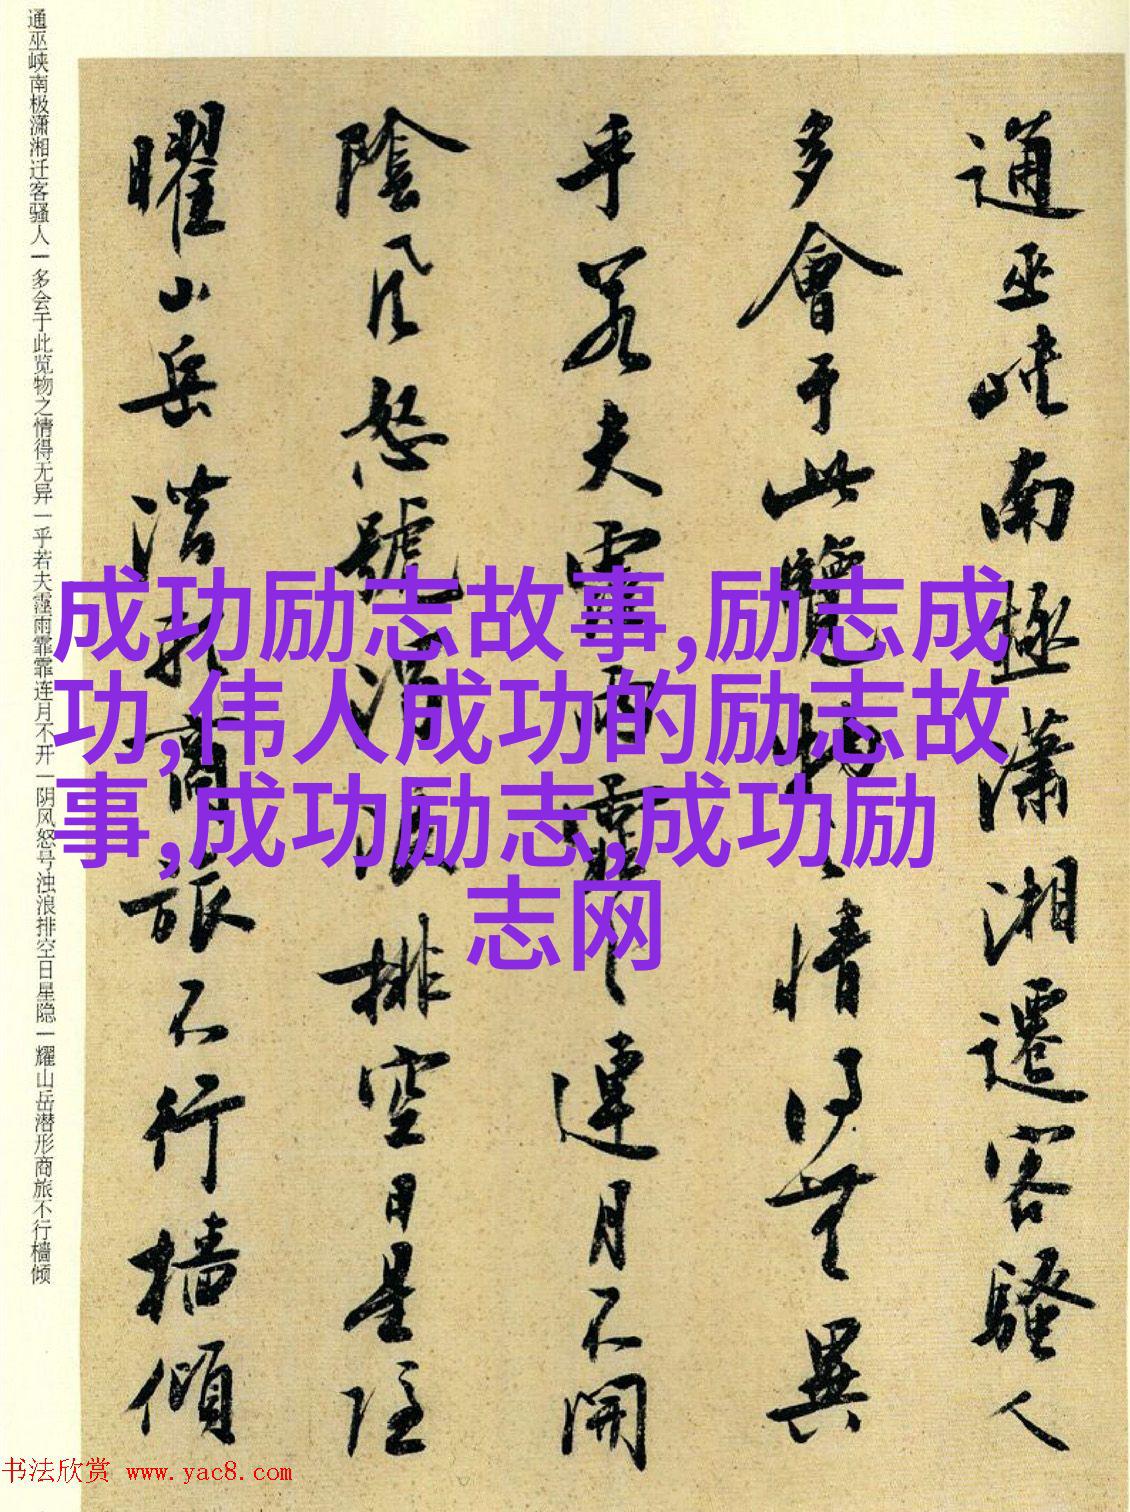 通巫峡南極瀟湘遷客騷人
多會于此覽物之情得無異
乎若夫霪雨霏霏連月不開
陰風怒號濁浪排空日星隱
曜山岳潜形商旅不行檣傾
通巫峡南极潇湘迁客骚人|多会于此览物之情得无异|乎若夫霪雨霏霏连月不开|阴风怒号浊浪排空日星隐|耀山岳潜形商旅不行檣倾
成功励志故事,励志成
功,伟人成功的励志故
事,成功励志,成功励
志网
书法欣赏 www.yac8.com